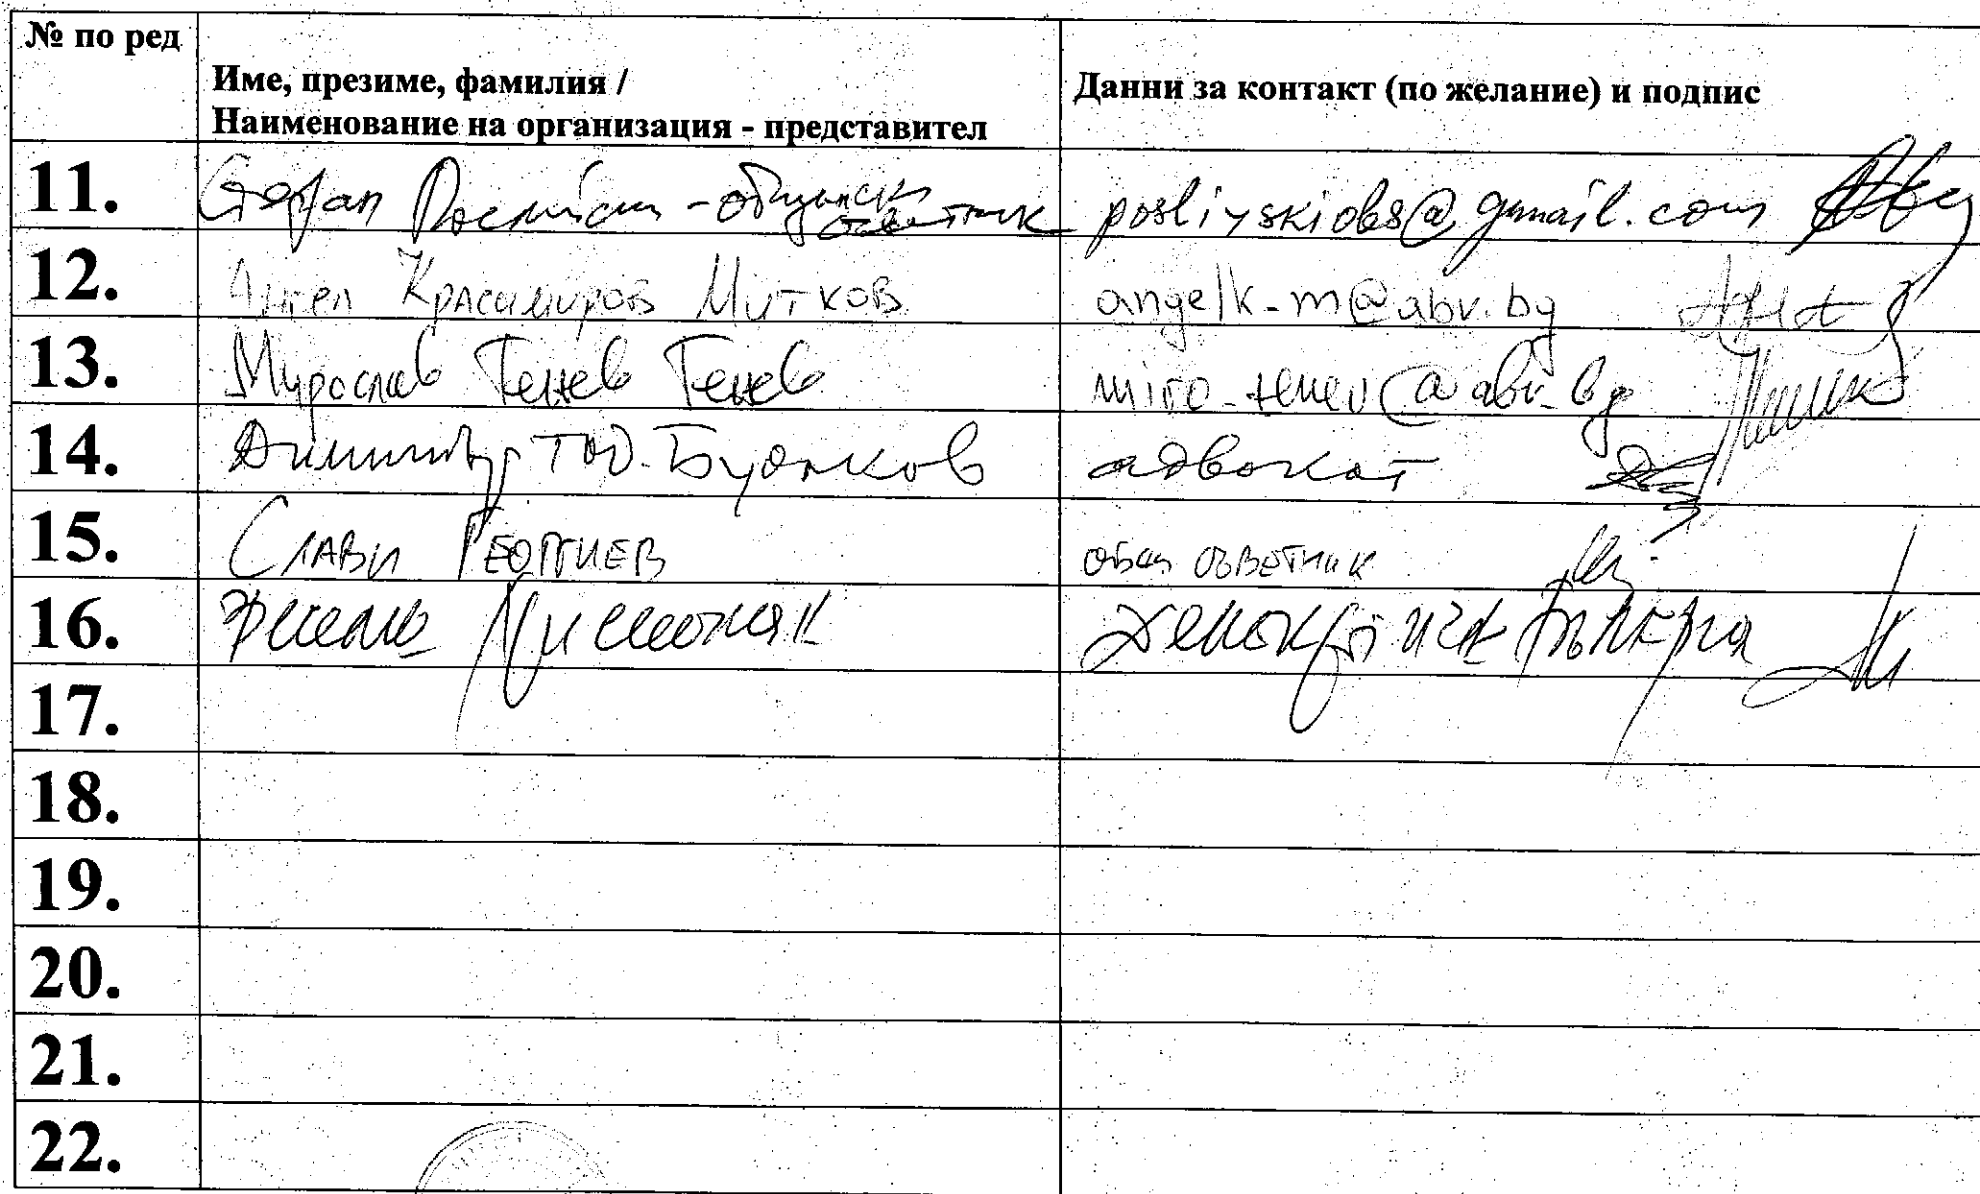 № по ред
Име, презиме, фамилия /
Наименование на организация - представител
Данни за контакт (по желание) и подпис
11. Стефан - общински съветник posliyskiobs@gmail.com
12. Ангел Красимиров Митков angelk-m@abv.bg
13. Мирослав Тенев Тенев miro-tenev@abv.bg
14. Димитър Тод. адвокат
15. Слави Георгиев общ съветник
16. Демократична България
17.
18.
19.
20.
21.
22.